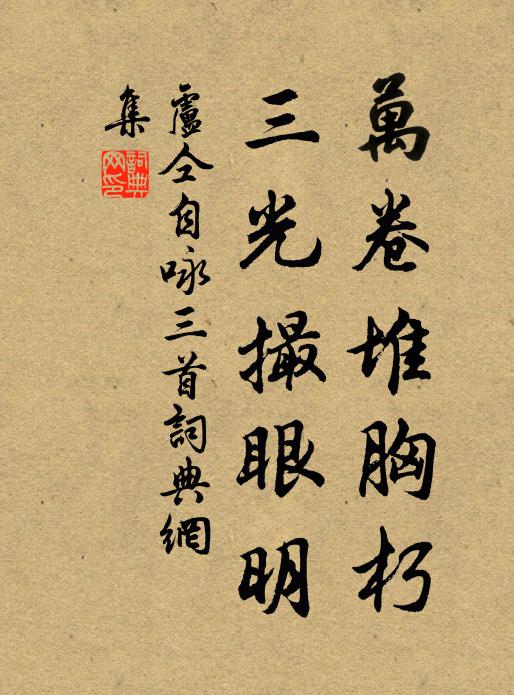 萬卷堆胸朽
三光撮眼明
盧仝自咏三首詞典網
集
詞典
网印